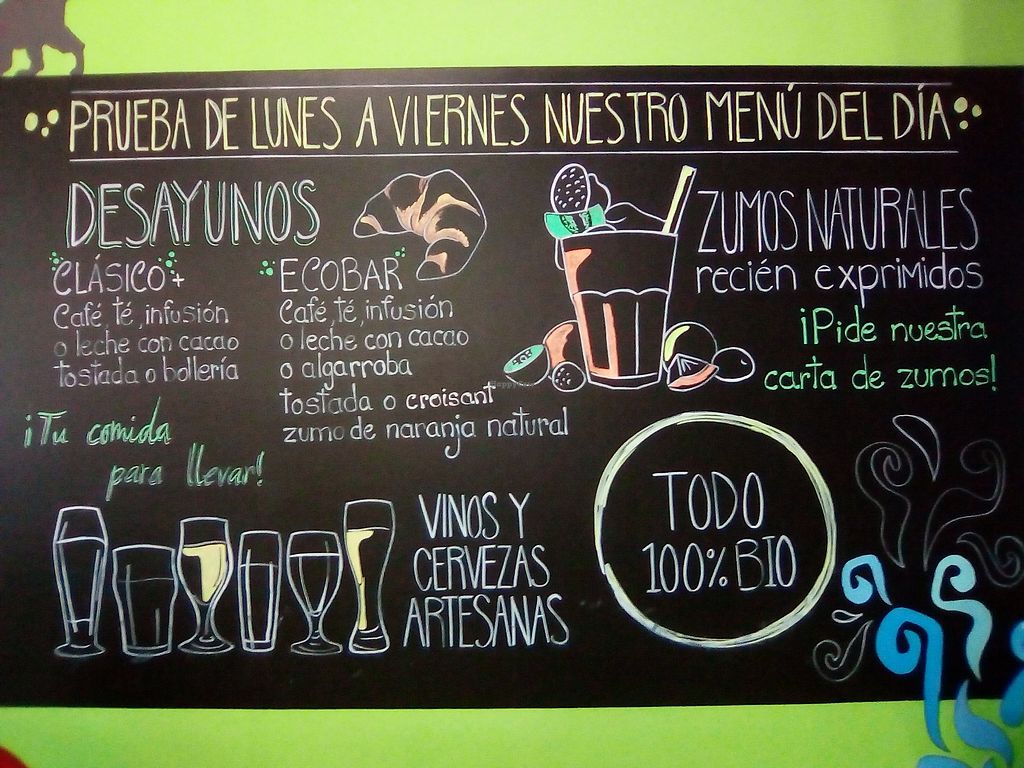 PRUEBA DE LUNES A VIERNES NUESTRO MENÚ DEL DÍA
DESAYUNOS
CLÁSICO +
Café té, infusión
o leche con cacao
tostada o bollería
ECOBAR
Café, té, infusión
o leche con cacao
o algarroba
tostada o croisant
zumo de naranja natural
ZUMOS NATURALES
recién exprimidos
¡Pide nuestra
carta de zumos!
¡Tu comida
para llevar!
VINOS Y
CERVEZAS
ARTESANAS
TODO
100% BIO